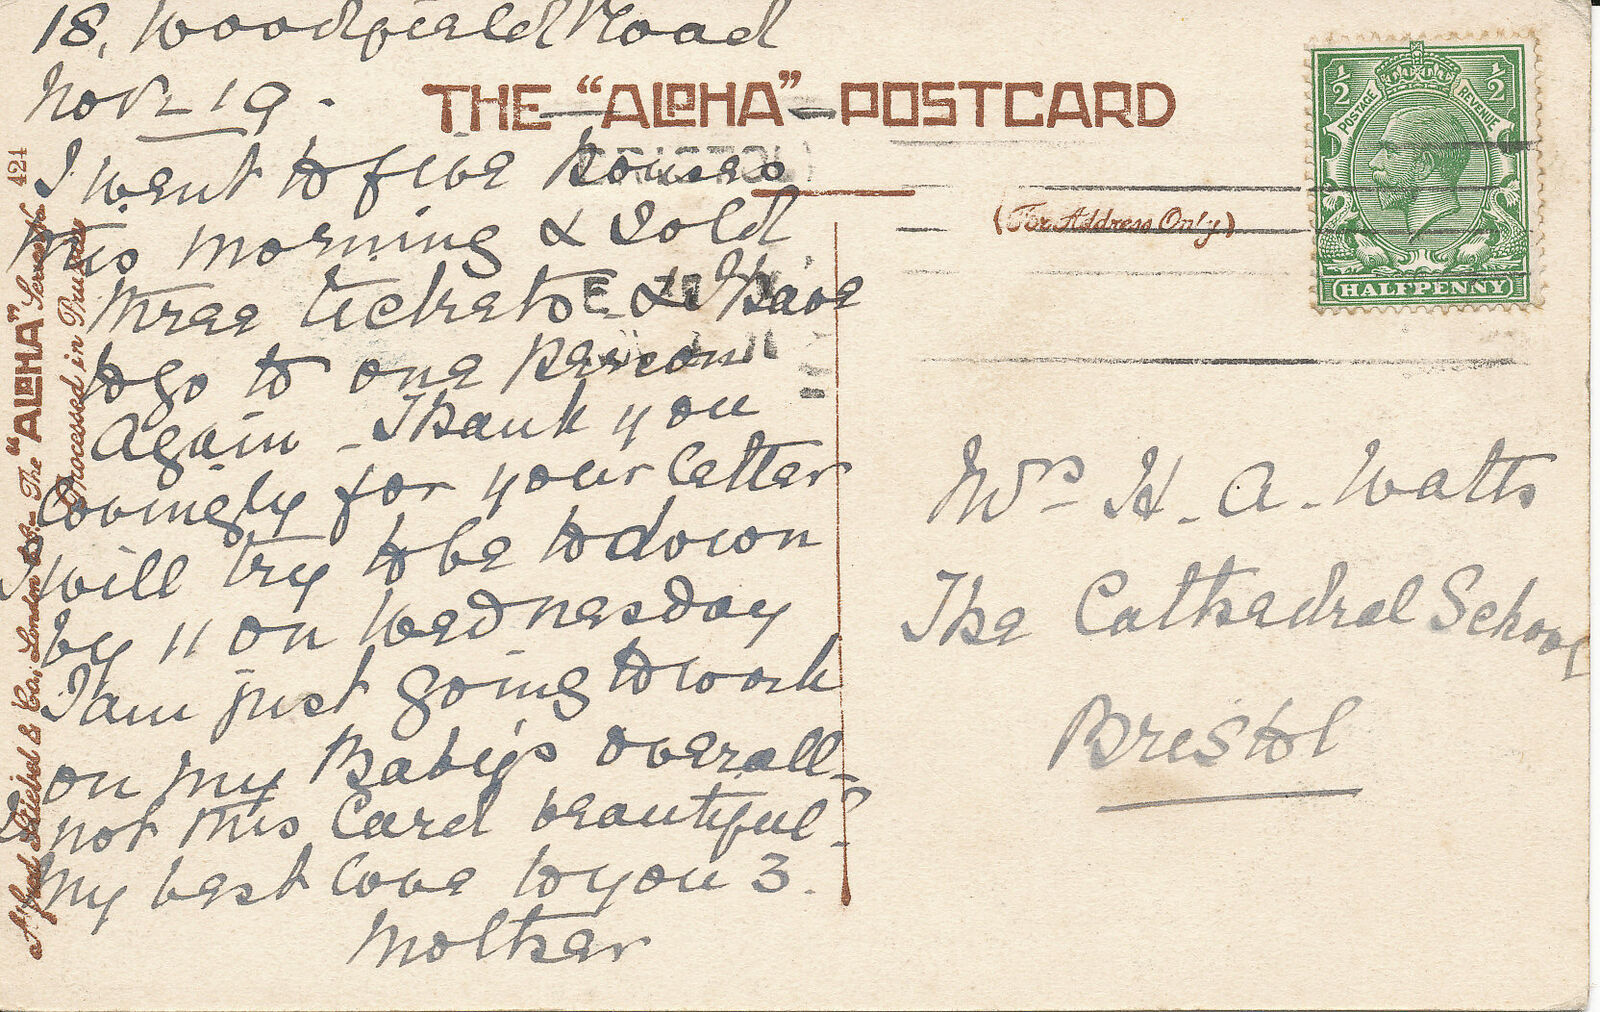 18, Woodfield Road
Nov 19.
THE "ALPHA" POSTCARD
I went to five houses
this morning & sold
three tickets & I have
to go to one person
again – Thank you
lovingly for your letter
I will try to be to down
by 11 on Wednesday
I am just going to work
on my Baby's overall –
Is not this Card beautiful?
My best love to you 3.
Mother
(For Address Only)
POSTAGE REVENUE
½ ½
HALFPENNY
BRISTOL
Mrs H. A. Watts
The Cathedral School
Bristol
Alfred Stiebel & Co., London E.C. – The "ALPHA" Series № 421
Processed in Prussia